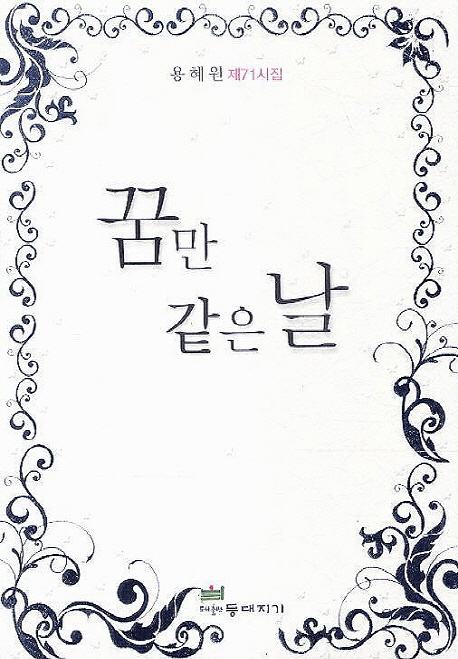 용혜원 제71시집
꿈만
같은 날
도서출판 등대지기